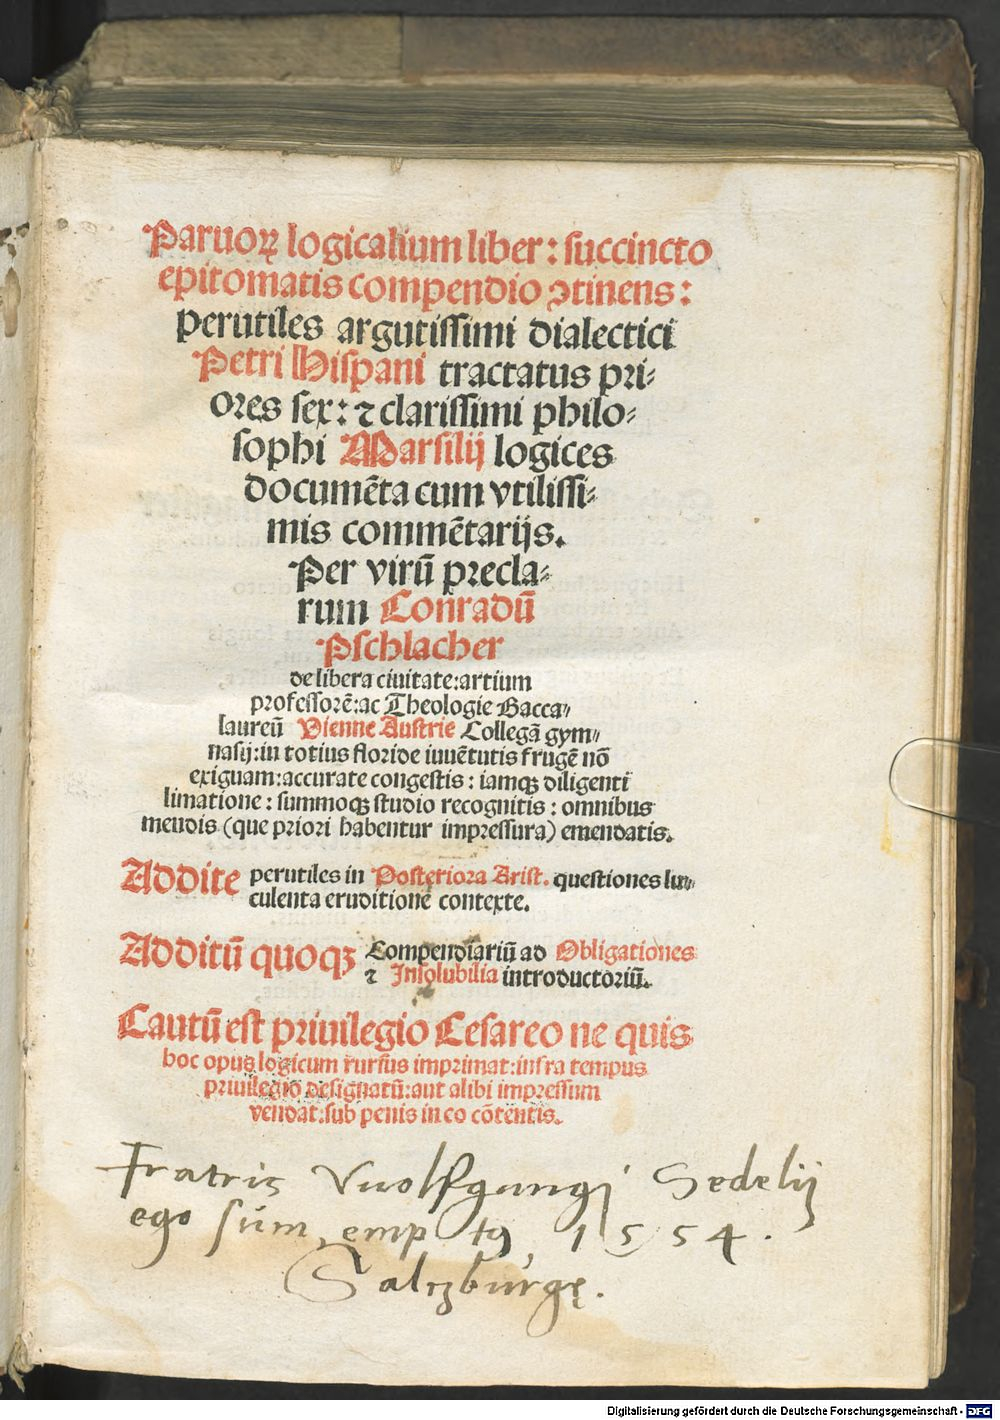 Paruoꝝ logicalium liber: succincto
epitomatis compendio ↄtinens:
perutiles argutissimi dialectici
Petri Hispani tractatus pri⸗
ores sex: ⁊ clarissimi philo⸗
sophi Marsilij logices
documẽta cum vtilissi⸗
mis commẽtarijs.
Per virũ precla⸗
rum Conradũ
Pschlacher
de libera ciuitate: artium
professorẽ: ac Theologie Bacca⸗
laureũ Vienne Austrie Collegã gym⸗
nasij: in totius floride iuuẽtutis frugẽ nõ
exiguam: accurate congestis: iamqꝫ diligenti
limatione: summoqꝫ studio recognitis: omnibus
mendis (que priori habentur impressura) emendatis.
Addite perutiles in Posteriora Arist. questiones lu⸗
culenta eruditione contexte.
Additũ quoqꝫ Compendiariũ ad Obligationes
⁊ Insolubilia introductoriũ.
Cautũ est priuilegio Cesareo ne quis
hoc opus logicum rursus imprimat: infra tempus
priuilegio designatũ: aut alibi impressum
vendat: sub penis in eo cõtentis.
Fratris Vuolfgangi Sedelij
ego sum, emptꝰ, 1554.
Saltzburgę.
Digitalisierung gefördert durch die Deutsche Forschungsgemeinschaft - DFG